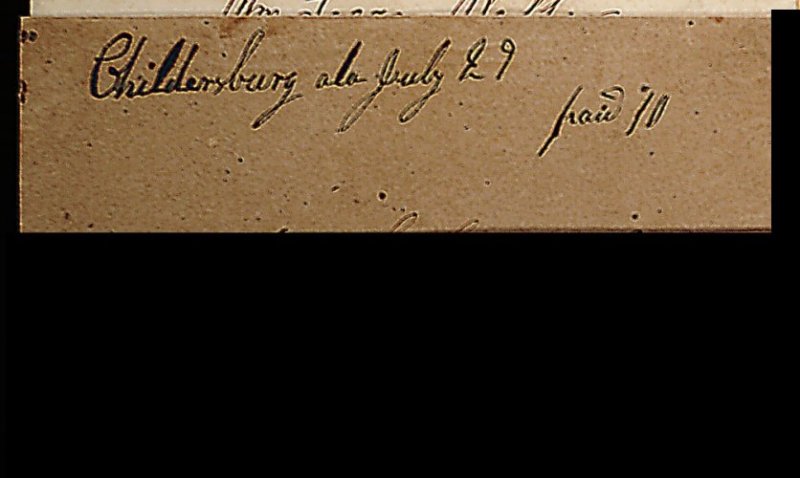 Childersburg ala July 29
paid 10